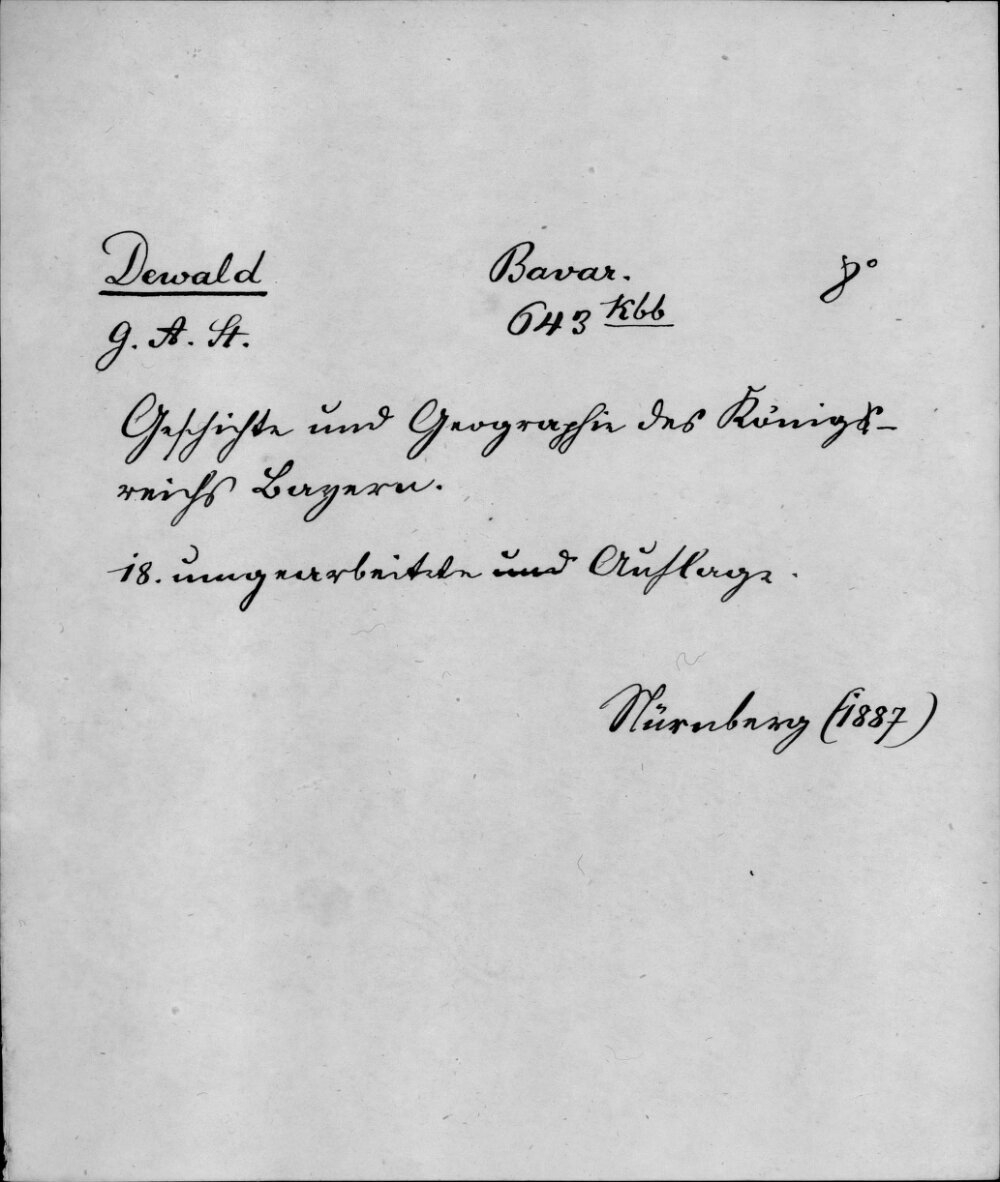 Dewald Bavar. 8°
G. A. St. 643 Kbb
Geschichte und Geographie des Königs-
reichs Bayern.
18. umgearbeitete und Auflage.
Nürnberg (1887)